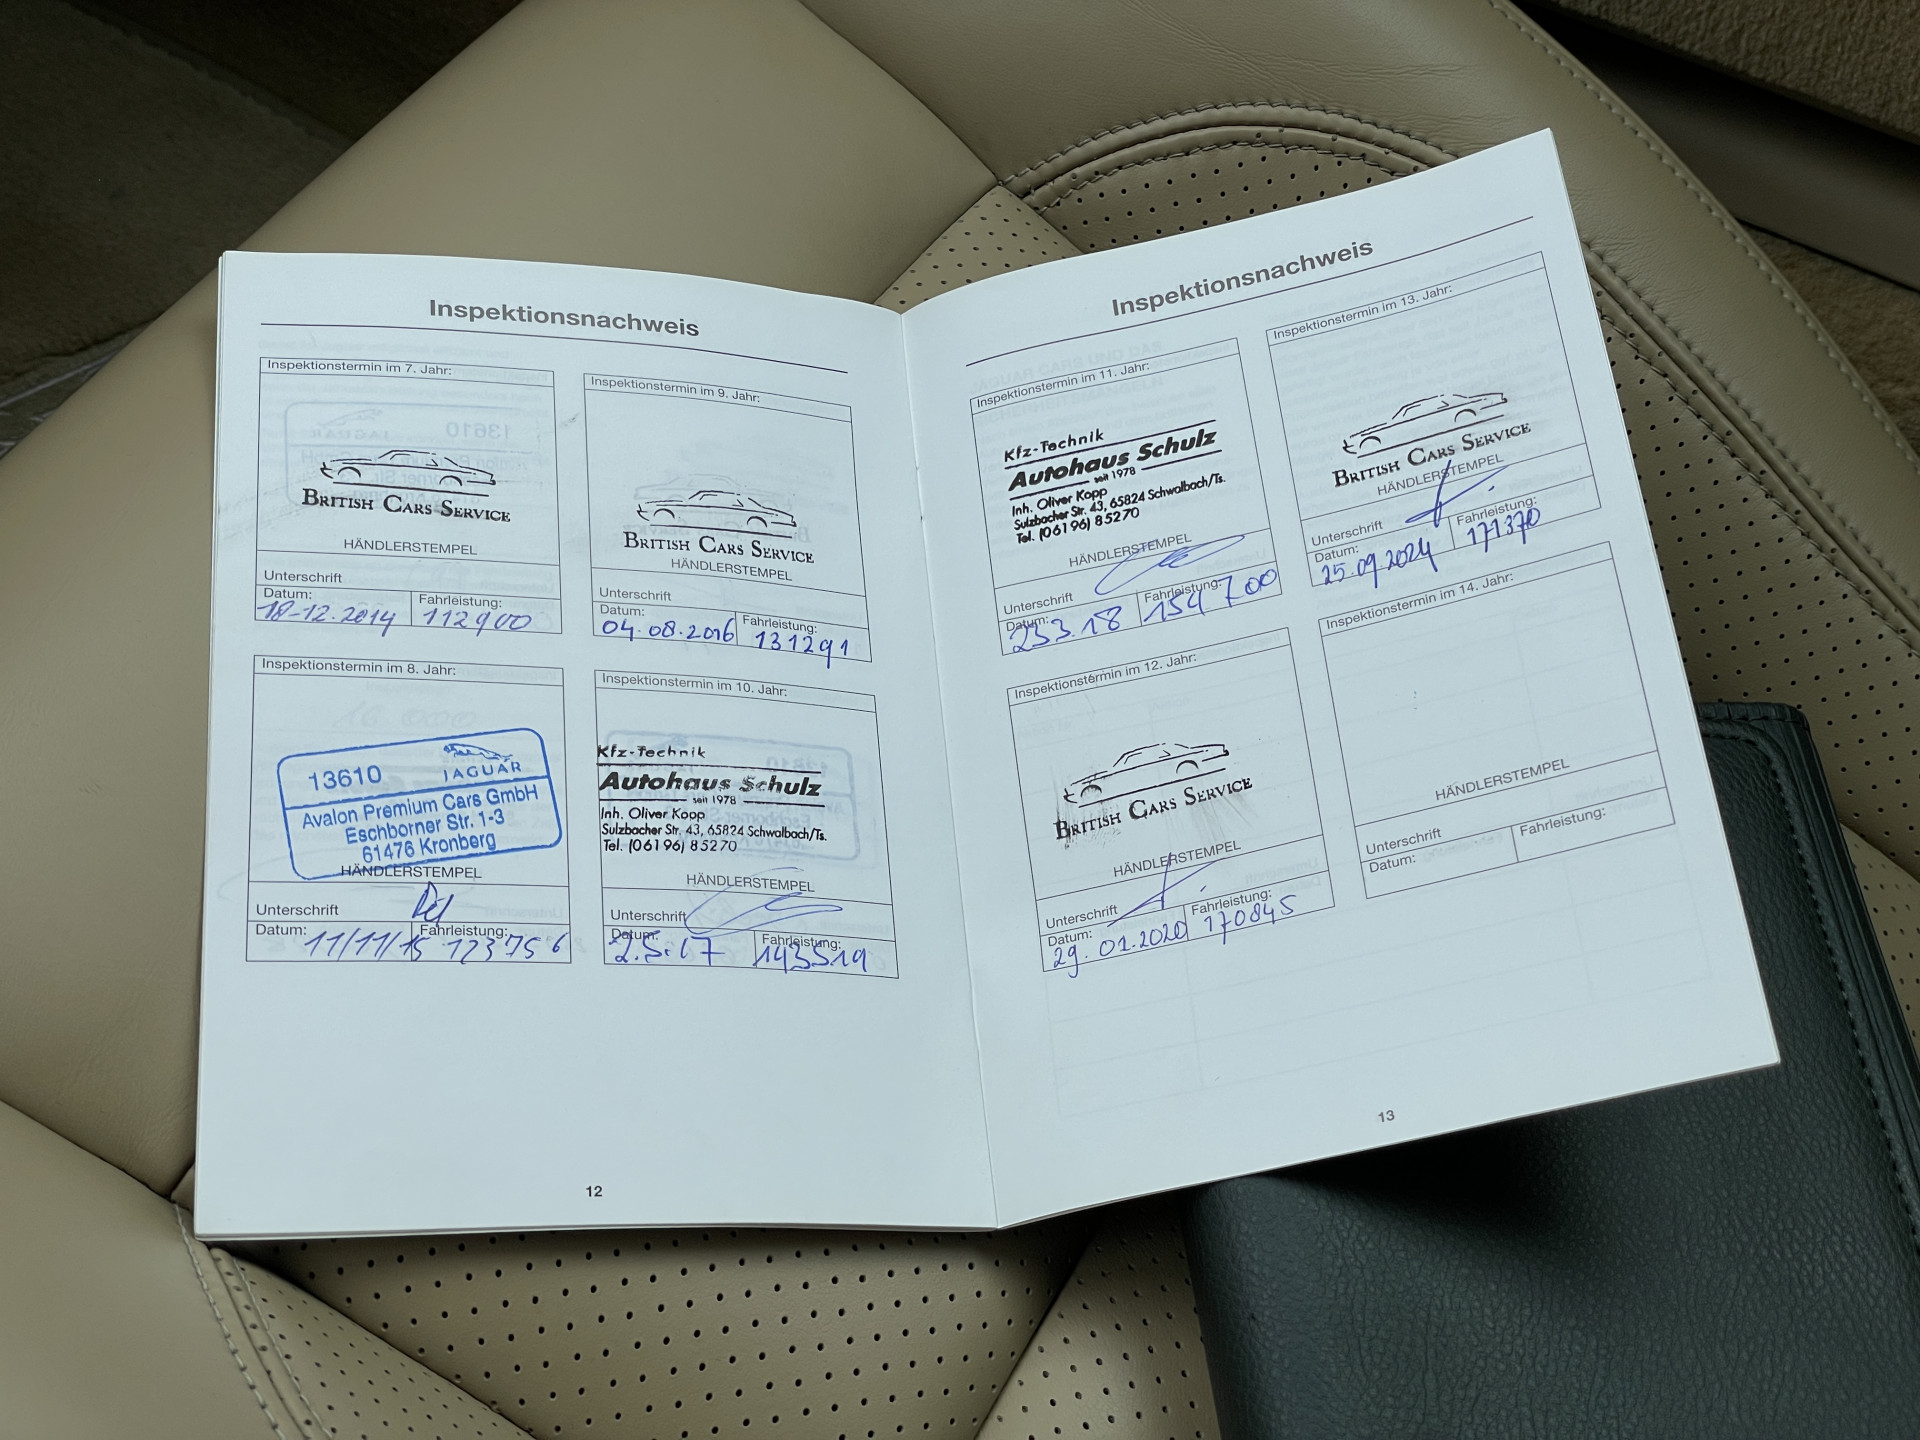 Inspektionsnachweis
Inspektionstermin im 7. Jahr:
BRITISH CARS SERVICE
HÄNDLERSTEMPEL
Unterschrift
Datum: Fahrleistung:
18-12.2014 112900
Inspektionstermin im 8. Jahr:
13610 JAGUAR
Avalon Premium Cars GmbH
Eschborner Str. 1-3
61476 Kronberg
HÄNDLERSTEMPEL
Unterschrift
Datum: Fahrleistung:
11/11/15 123756
Inspektionstermin im 9. Jahr:
BRITISH CARS SERVICE
HÄNDLERSTEMPEL
Unterschrift
Datum: Fahrleistung:
04.08.2016 131291
Inspektionstermin im 10. Jahr:
Kfz-Technik
Autohaus Schulz
seit 1978
Inh. Oliver Kopp
Sulzbacher Str. 43, 65824 Schwalbach/Ts.
Tel. (06196) 85270
HÄNDLERSTEMPEL
Unterschrift
Datum: Fahrleistung:
2.5.17 143519
12
Inspektionsnachweis
Inspektionstermin im 11. Jahr:
Kfz-Technik
Autohaus Schulz
seit 1978
Inh. Oliver Kopp
Sulzbacher Str. 43, 65824 Schwalbach/Ts.
Tel. (06196) 85270
HÄNDLERSTEMPEL
Unterschrift
Datum: Fahrleistung:
23.3.18 154700
Inspektionstermin im 12. Jahr:
BRITISH CARS SERVICE
HÄNDLERSTEMPEL
Unterschrift
Datum: Fahrleistung:
29.01.2020 170845
Inspektionstermin im 13. Jahr:
BRITISH CARS SERVICE
HÄNDLERSTEMPEL
Unterschrift
Datum: Fahrleistung:
25.09.2024 171370
Inspektionstermin im 14. Jahr:
HÄNDLERSTEMPEL
Unterschrift
Datum: Fahrleistung:
13